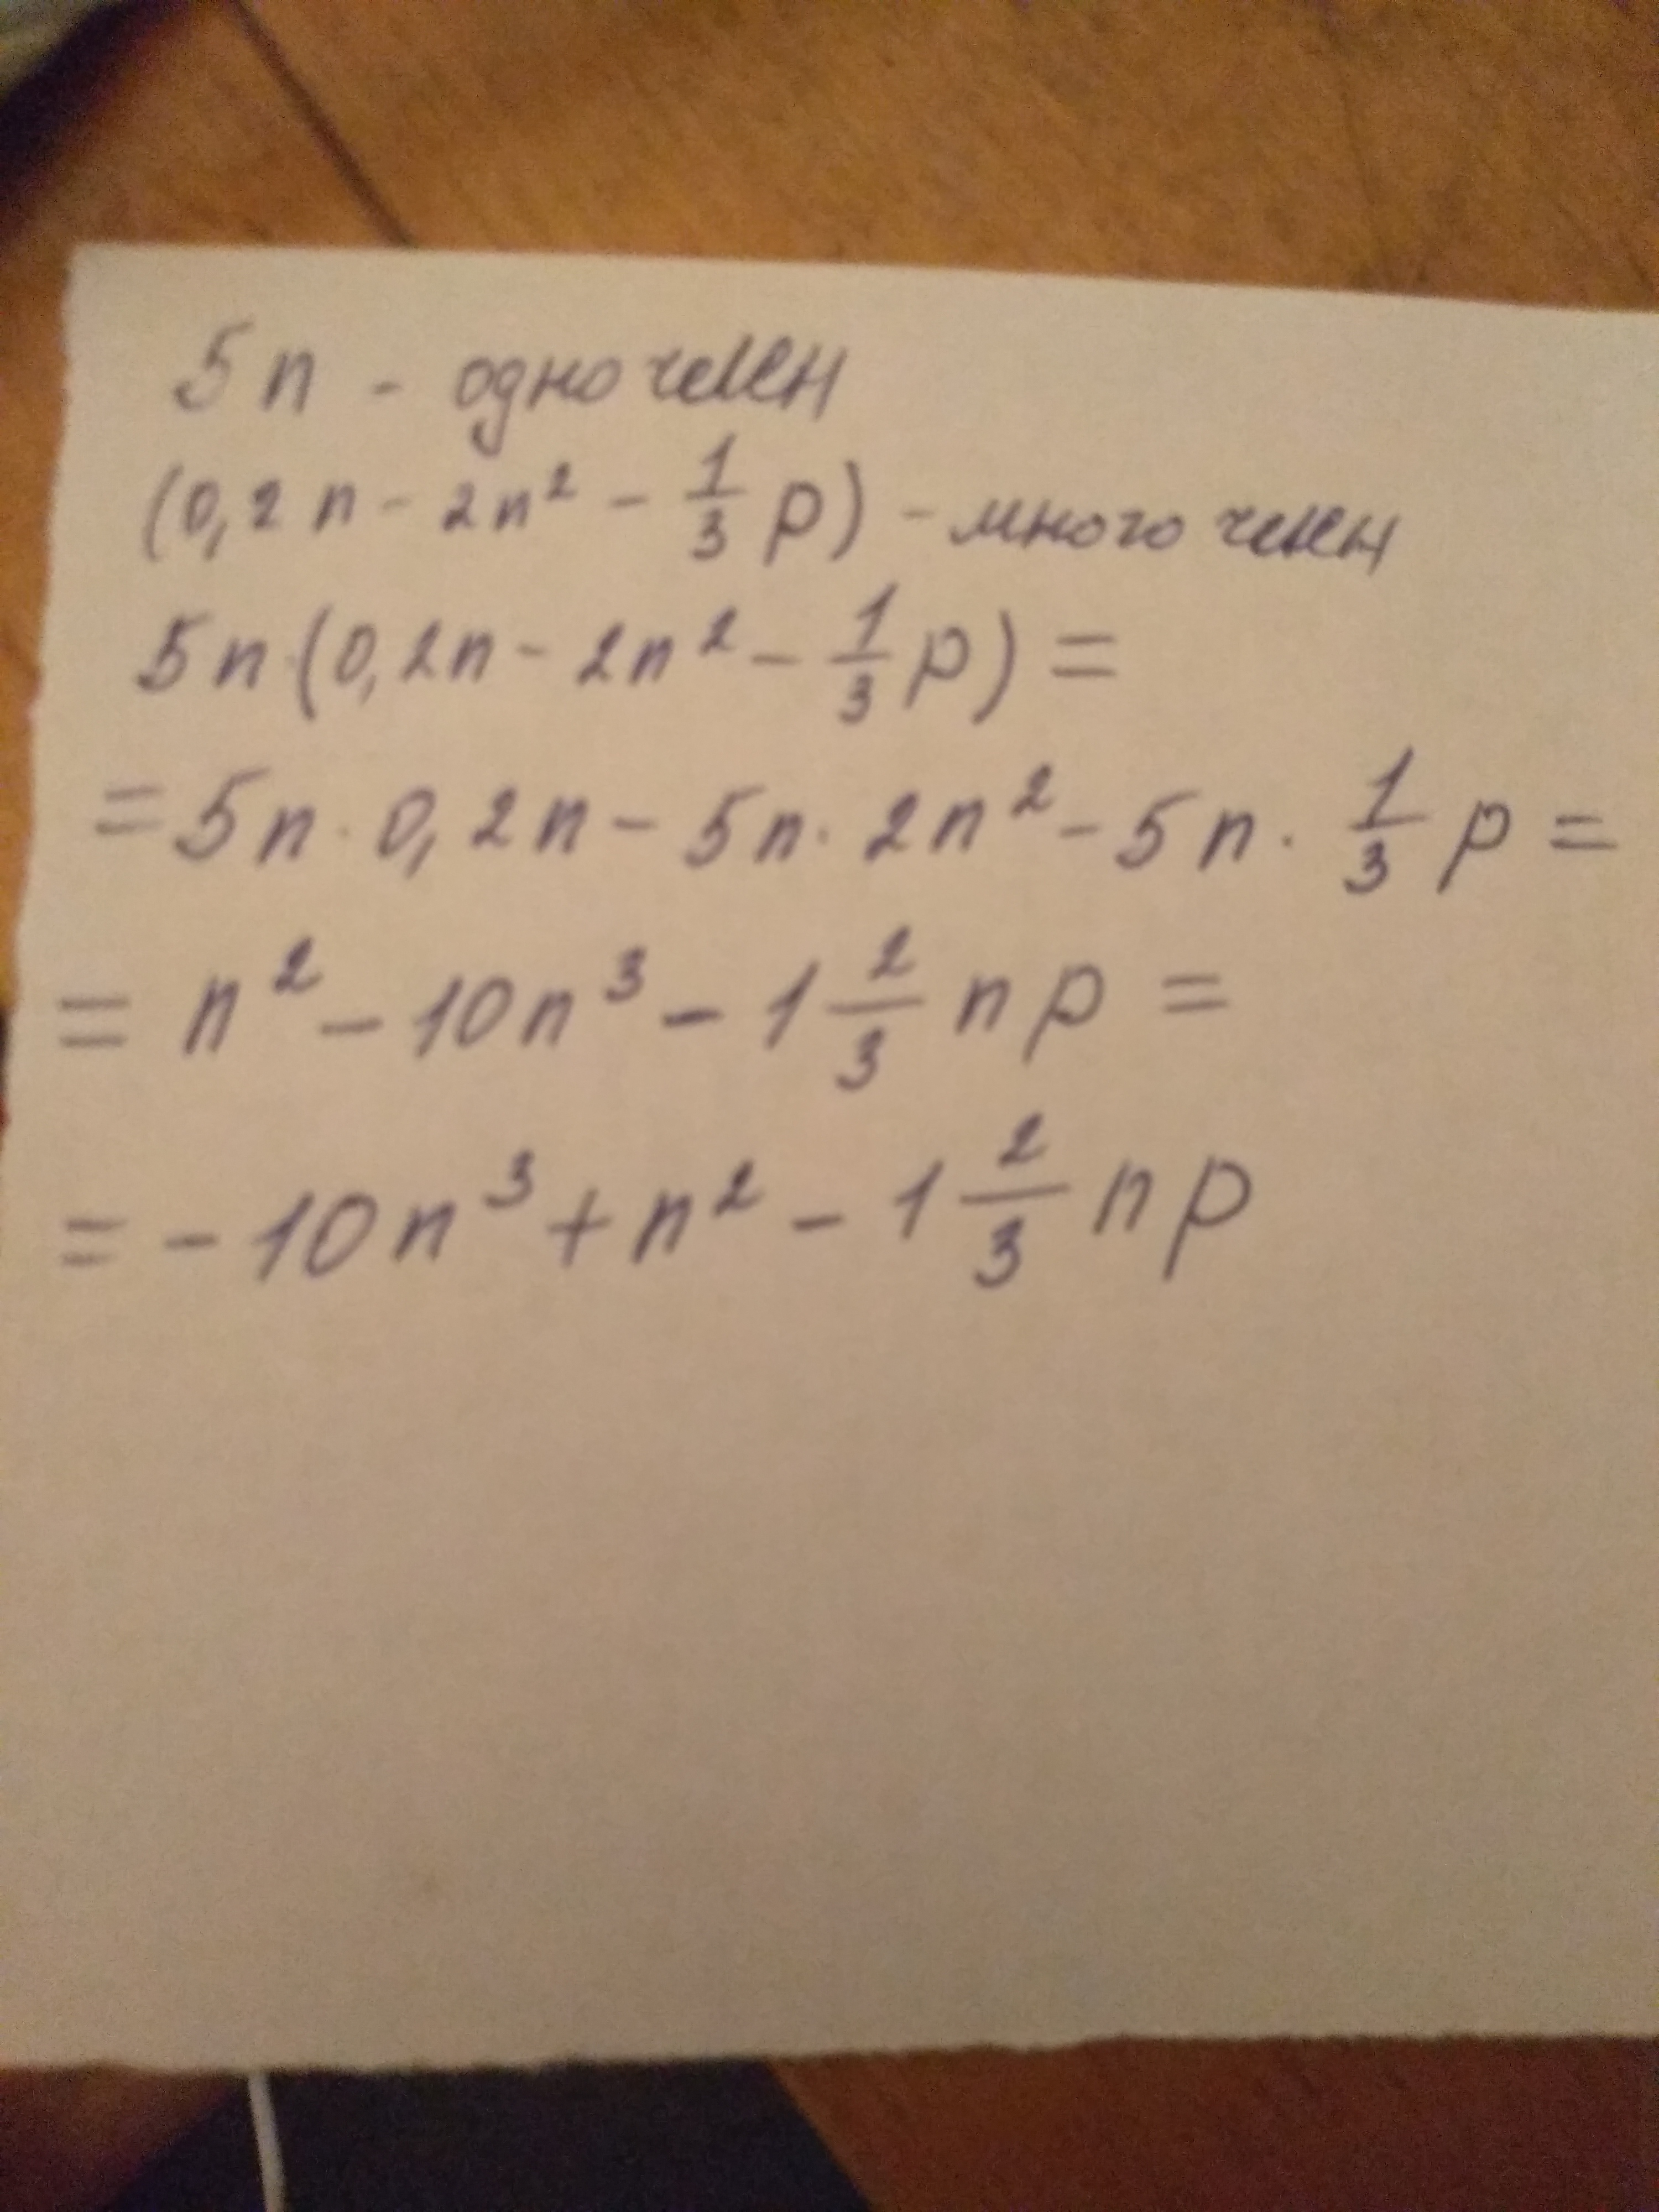 5n - одночлен
(0,2n - 2n² - 1/3 p) - многочлен
5n·(0,2n - 2n² - 1/3 p) =
= 5n · 0,2n - 5n · 2n² - 5n · 1/3 p =
= n² - 10n³ - 1 2/3 np =
= - 10n³ + n² - 1 2/3 np